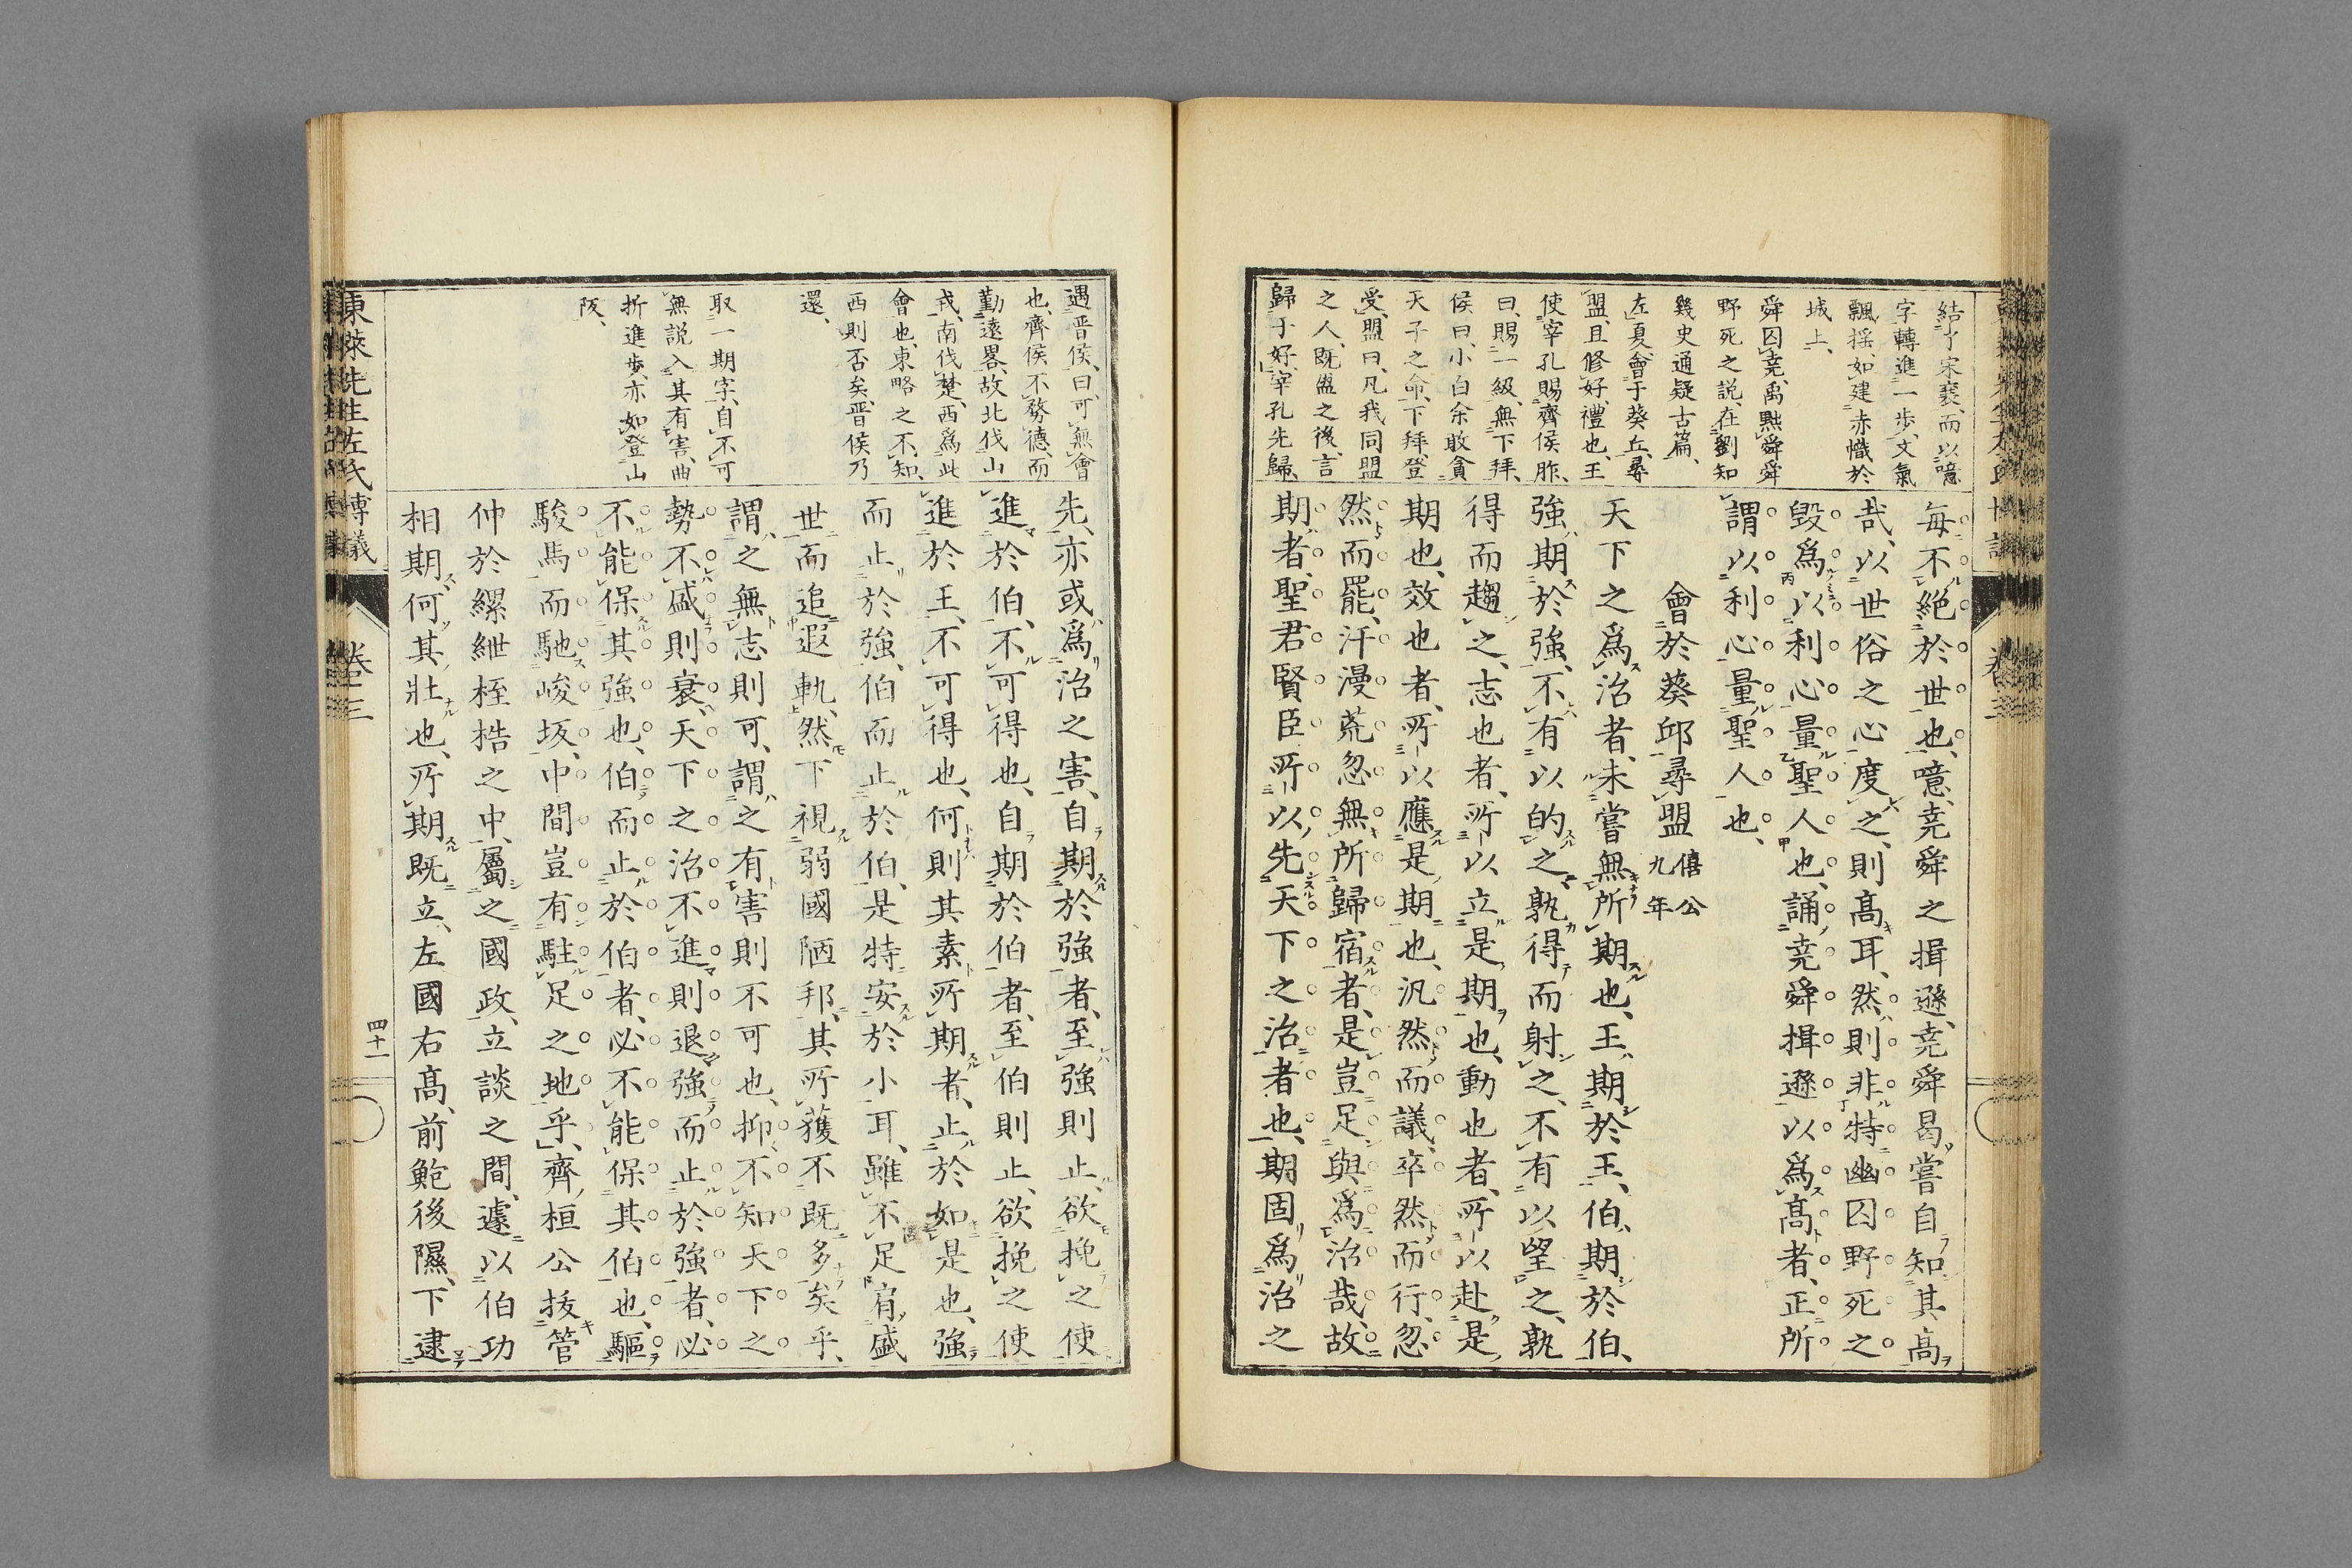 結了宋襄、而以噫
字轉進一歩、文氣
飄搖、如建赤幟於
城上、
舜囚堯、禹黜舜舜
野死之説、在劉知
幾史通疑古篇、
左夏會于葵丘、尋
盟、且修好、禮也、王
使宰孔賜齊侯胙、
曰、賜一級、無下拜、
侯曰、小白余敢貪
天子之命、下拜、登
受、盟曰、凡我同盟
之人、既盟之後、言
歸于好、宰孔先歸、
每不絕於世也、噫、堯舜之揖遜、堯舜曷嘗自知其高
哉、以世俗之心度之、則高耳、然則非特幽囚野死之
毀爲以利心量聖人也、誦堯舜揖遜以爲高者、正所
謂以利心量聖人也、
會於葵邱尋盟 僖公九年
天下之爲治者、未嘗無所期也、王期於王、伯期於伯、
強期於強、不有以的之、孰得而射之、不有以望之、孰
得而趨之、志也者、所以立是期也、動也者、所以赴是
期也、效也者、所以應是期也、汎然而議、卒然而行、忽
然而罷、汗漫荒忽無所歸宿者、是豈足與爲治哉、故
期者、聖君賢臣所以先天下之治者也、期固爲治之
遇晋侯、曰、可無會
也、齊侯不務德、而
勤遠畧、故北伐山
戎、南伐楚、西爲此
會也、東略之不知、
西則否矣、晋侯乃
還、
取一期字、自不可
無説入其有害、曲
折進歩、亦如登山
阪、
先、亦或爲治之害、自期於強者、至強則止、欲挽之使
進於伯、不可得也、自期於伯者、至伯則止、欲挽之使
進於王、不可得也、何則其素所期者、止於如是也、強
而止於強、伯而止於伯、是特安於小耳、雖不足肩盛
世而追遐軌、然下視弱國陋邦、其所獲不既多矣乎、
謂之無志則可、謂之有害則不可也、抑不知天下之
勢不盛則衰、天下之治不進則退、強而止於強者、必
不能保其強也、伯而止於伯者、必不能保其伯也、驅
駿馬而馳峻坂、中間豈有駐足之地乎、齊桓公拔管
仲於縲紲桎梏之中、屬之國政、立談之間、遽以伯功
相期、何其壯也、所期既立、左國右高、前鮑後隰、下逮
東萊先生左氏博議
卷三
四十一